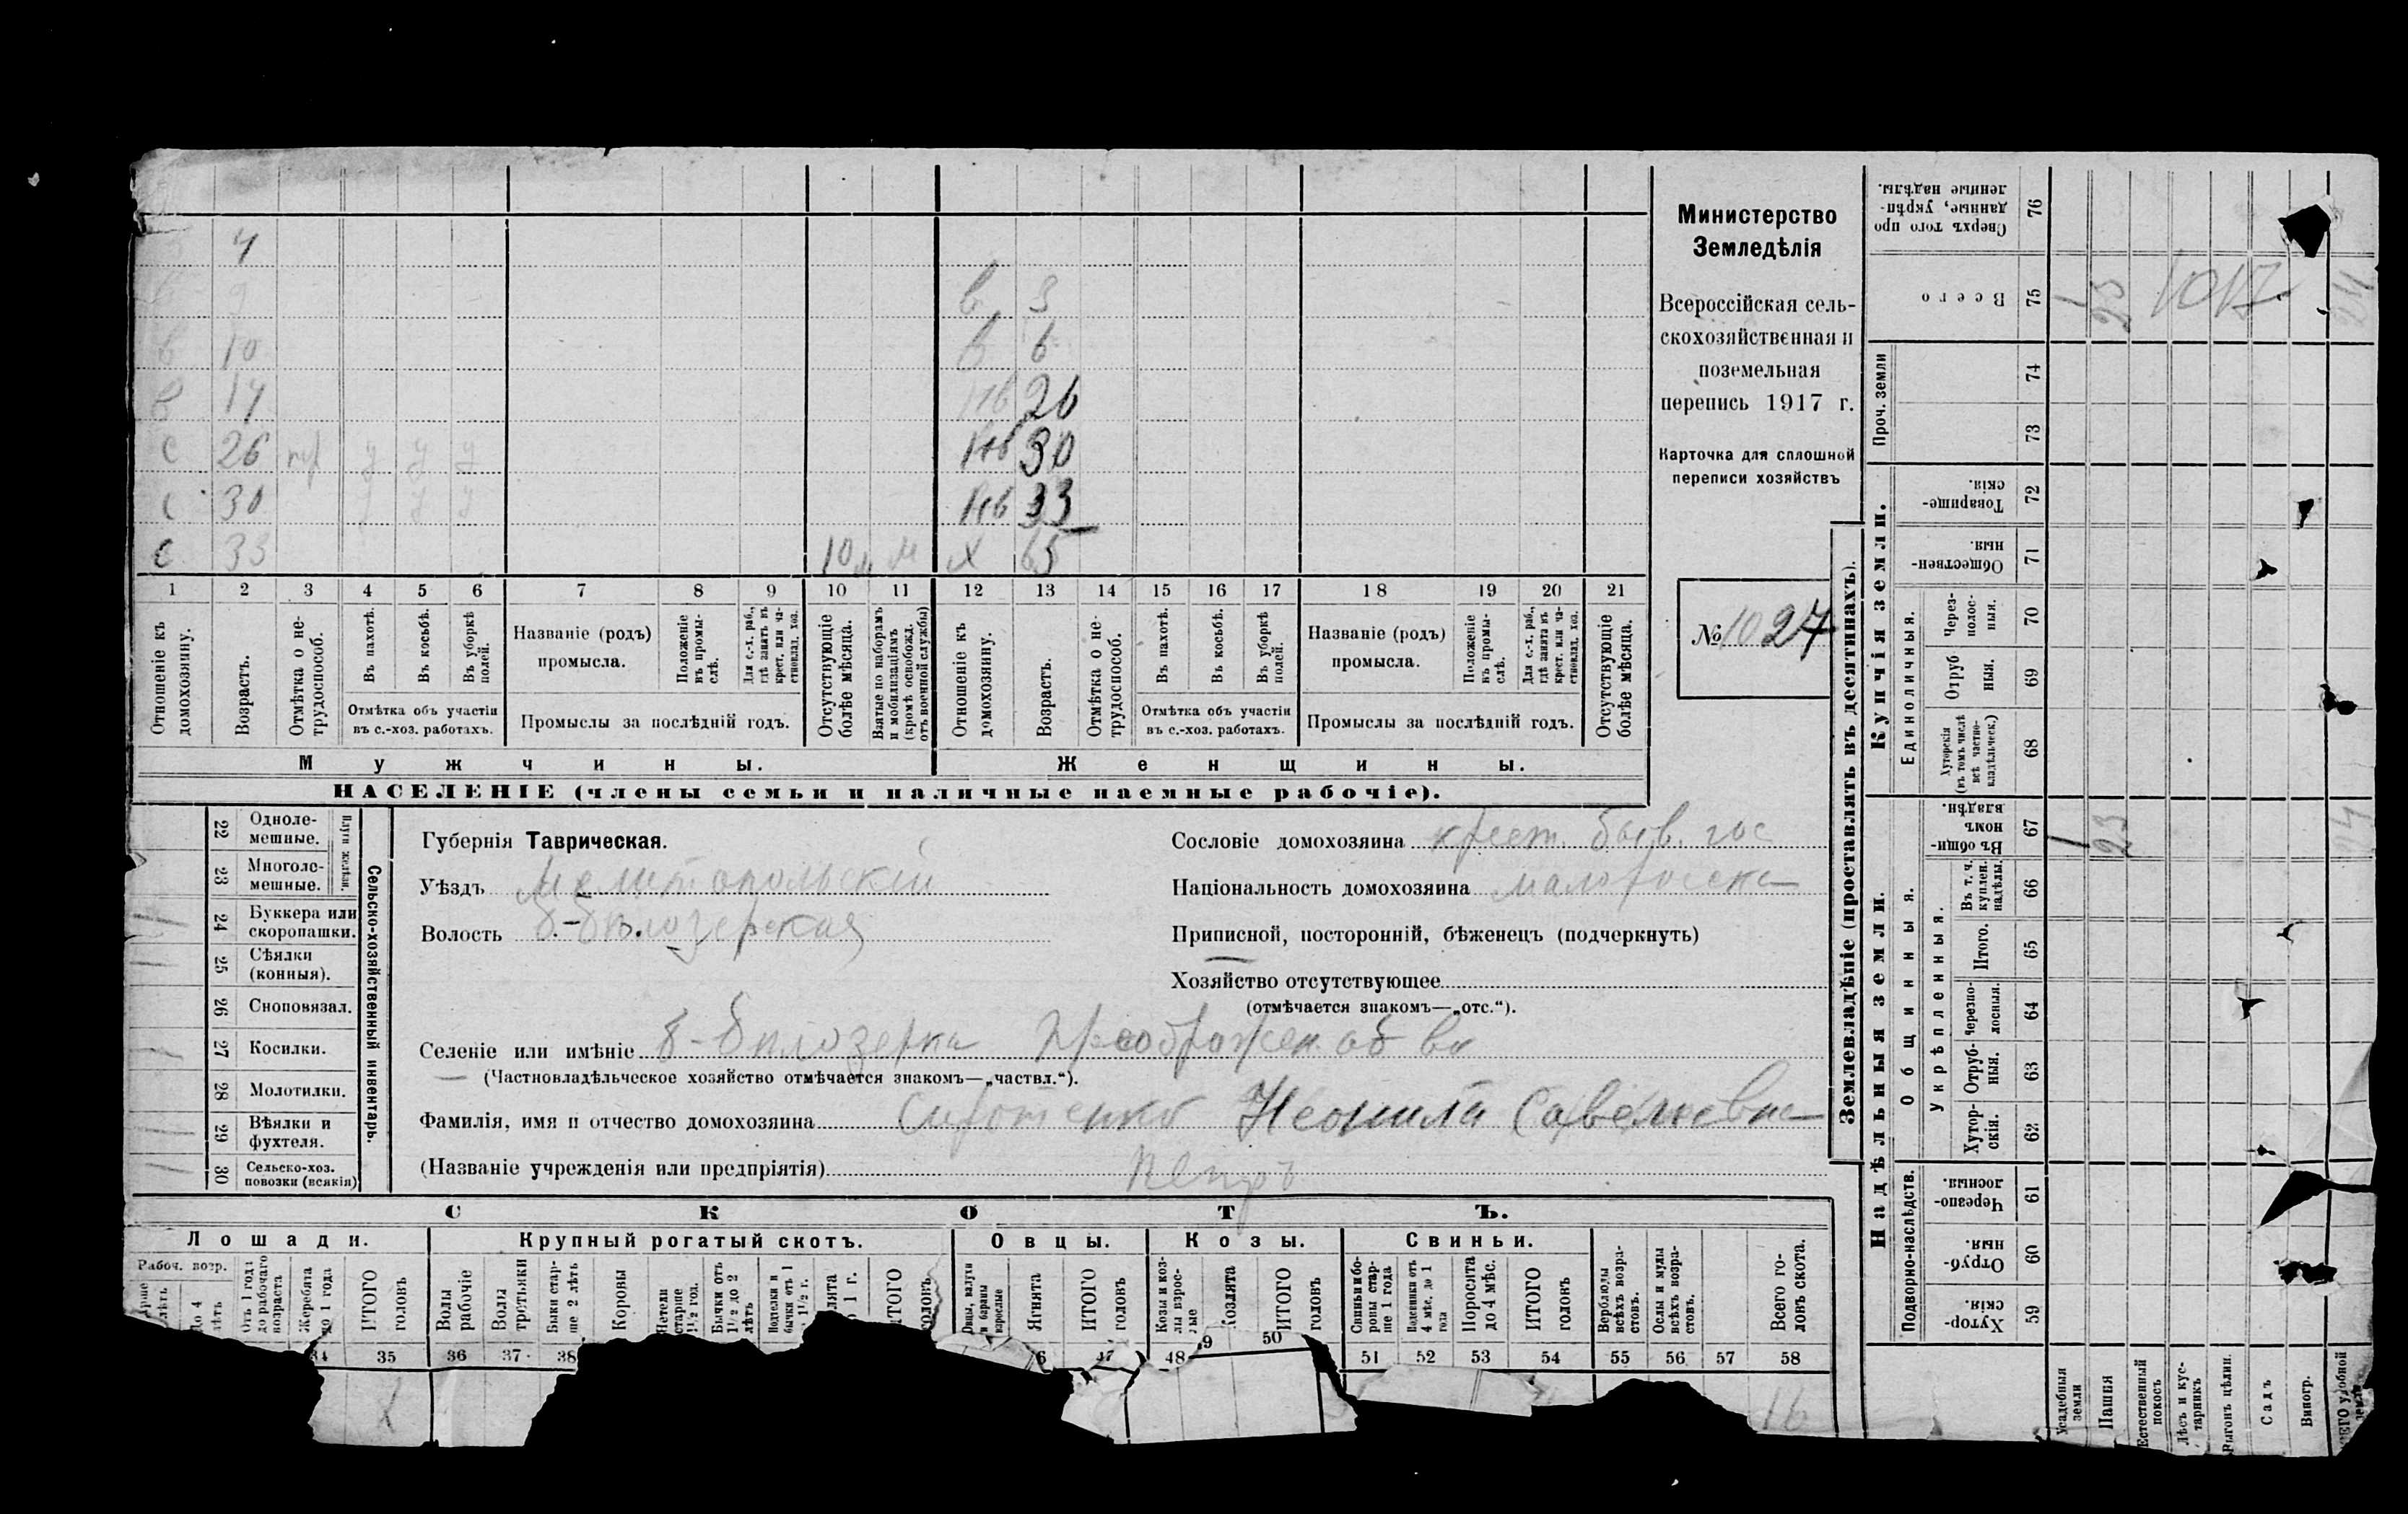 4
9 в 3
в 10 в 6
в 14 нв 26
с 26 у у у нв 30
с 30 у у у нв 33
с 33 10 м м х 65
1 2 3 4 5 6 7 8 9 10 11 12 13 14 15 16 17 18 19 20 21
Отношеніе къ домохозяину.
Возрастъ.
Отмѣтка о не-трудоспособ.
Въ пахотѣ.
Въ косьбѣ.
Въ уборкѣ полей.
Отмѣтка объ участіи
въ с.-хоз. работахъ.
Названіе (родъ)
промысла.
Положеніе въ промы-слѣ.
Для с.-х. раб., гдѣ занятъ въ крест. или ча-стновлад. хоз.
Промыслы за послѣдній годъ.
Отсутствующіе болѣе мѣсяца.
Взятые по наборамъ и мобилизаціямъ (кромѣ освобожд. отъ военной службы)
Отношеніе къ домохозяину.
Возрастъ.
Отмѣтка о не-трудоспособ.
Въ пахотѣ.
Въ косьбѣ.
Въ уборкѣ полей.
Отмѣтка объ участіи
въ с.-хоз. работахъ.
Названіе (родъ)
промысла.
Положеніе въ промы-слѣ.
Для с.-х. раб., гдѣ занята въ крест. или ча-стновлад. хоз.
Промыслы за послѣдній годъ.
Отсутствующіе болѣе мѣсяца.
Мужчины.
Женщины.
НАСЕЛЕНІЕ (члены семьи и наличные наемные рабочіе).
Министерство
Земледѣлія
Всероссійская сель-
скохозяйственная и
поземельная
перепись 1917 г.
Карточка для сплошной
переписи хозяйствъ
№ 1027
22 Одноле-мешные.
23 Многоле-мешные.
Плуги желѣзн.
24 Буккера или скоропашки.
25 Сѣялки (конныя).
26 Сноповязал.
27 Косилки.
28 Молотилки.
29 Вѣялки и фухтеля.
30 Сельско-хоз. повозки (всякія)
Сельско-хозяйственный инвентарь.
Губернія Таврическая.
Уѣздъ Мелитопольскій
Волость Б.-Бѣлозерская
Сословіе домохозяина крест. быв. гос
Національность домохозяина малоросска
Приписной, посторонній, бѣженецъ (подчеркнуть)
Хозяйство отсутствующее
(отмѣчается знакомъ—„отс.“).
Селеніе или имѣніе Б-Бѣлозерка Преображен об во
(Частновладѣльческое хозяйство отмѣчается знакомъ—„частвл.“).
Фамилія, имя и отчество домохозяина Сиротенко Неонила Савельевна
(Названіе учрежденія или предпріятія) Петръ
СКОТЪ.
Лошади.
Крупный рогатый скотъ.
Овцы.
Козы.
Свиньи.
Рабоч. возр.
До 4 лѣтъ
Отъ 1 года до рабочаго возраста
Жеребята до 1 года
ИТОГО головъ
Волы рабочіе
Волы третьяки
Быки стар-ше 2 лѣтъ
Коровы
Нетели старше 1½ год.
Бычки отъ 1½ до 2 лѣтъ
Подтелки и бычки отъ 1 до 1½ г.
ИТОГО головъ
Овцы, валухи и бараны взрослые
Ягнята
ИТОГО головъ
Козы и коз-лы взрос-лые
Козлята
ИТОГО головъ
Свиньи и бо-ровы стар-ше 1 года
Подсвинки отъ 4 мѣс. до 1 года
Поросята до 4 мѣс.
ИТОГО головъ
Верблюды всѣхъ возра-стовъ.
Ослы и мулы всѣхъ возра-стовъ.
Всего го-ловъ скота.
34 35 36 37 38 47 48 50 51 52 53 54 55 56 57 58
16
Землевладѣніе (проставлять въ десятинахъ).
Надѣльныя земли.
Купчія земли.
Проч. земли
Подворно-наслѣдств.
Общинныя.
Укрѣпленныя.
Единоличныя.
59 Хутор-скія.
60 Отруб-ныя.
61 Черезпо-лосныя.
62 Хутор-скія.
63 Отруб-ныя.
64 Черезпо-лосныя.
65 Итого.
66 Въ т. ч. куплен. надѣлы.
67 Въ общи-номъ владѣн. 1 23 24
68 Хуторскія (въ томъ числѣ всѣ частно-владѣльческ.)
69 Отруб ныя.
70 Через-полос-ныя.
71 Обществен-ныя.
72 Товарище-скія.
73
74
75 Всего 1 23 1017 24
76 Сверхъ того про данные, укрѣп-ленные надѣлы.
Усадебныя земли
Пашня
Естественный покосъ
Лѣсъ и кус-тарникъ
Выгонъ цѣлин.
Садъ
Виногр.
ВСЕГО удобной земли